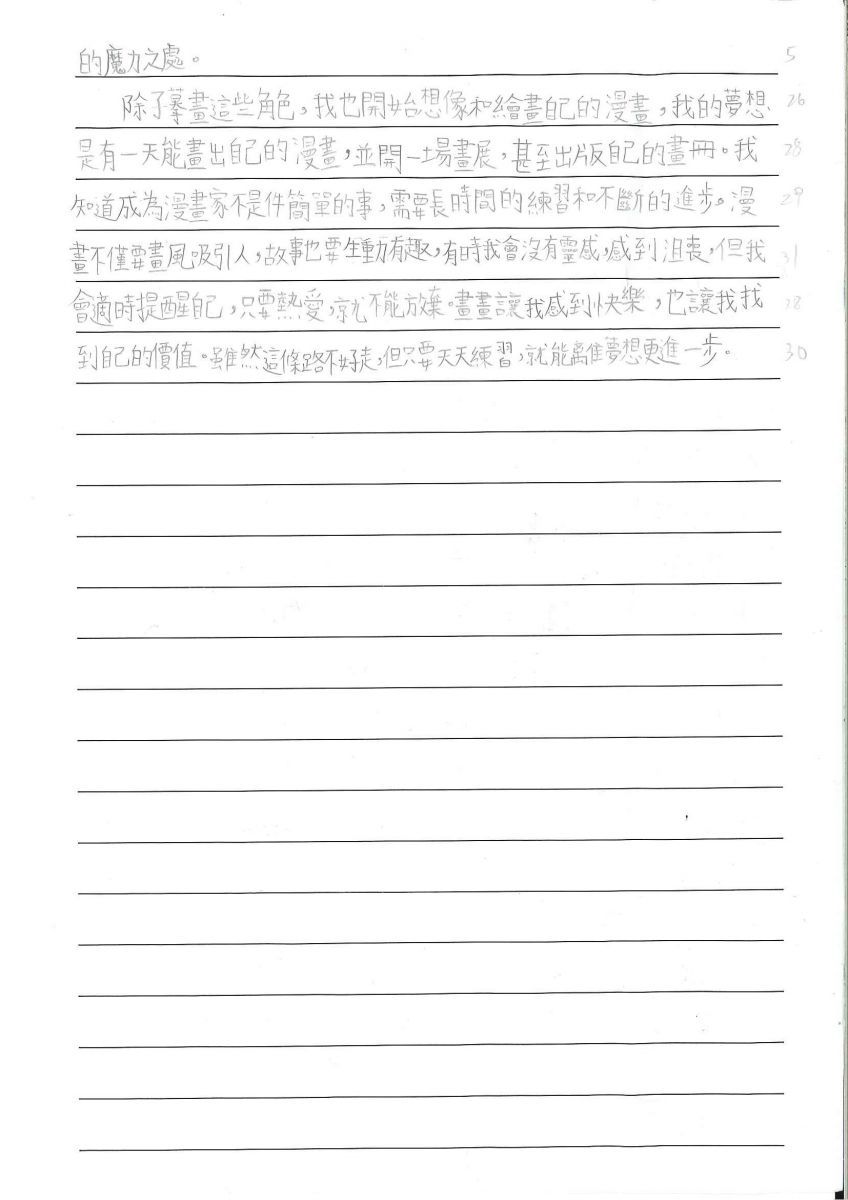 的魔力之處。 5
除了摹畫這些角色，我也開始想像和繪畫自己的漫畫，我的夢想 26
是有一天能畫出自己的漫畫，並開一場畫展，甚至出版自己的畫冊。我 28
知道成為漫畫家不是件簡單的事，需要長時間的練習和不斷的進步。漫 29
畫不僅要畫風吸引人，故事也要生動有趣，有時我會沒有靈感，感到沮喪，但我 31
會適時提醒自己，只要熱愛，就不能放棄。畫畫讓我感到快樂，也讓我找 28
到自己的價值。雖然這條路不好走，但只要天天練習，就能離夢想更進一步。 30